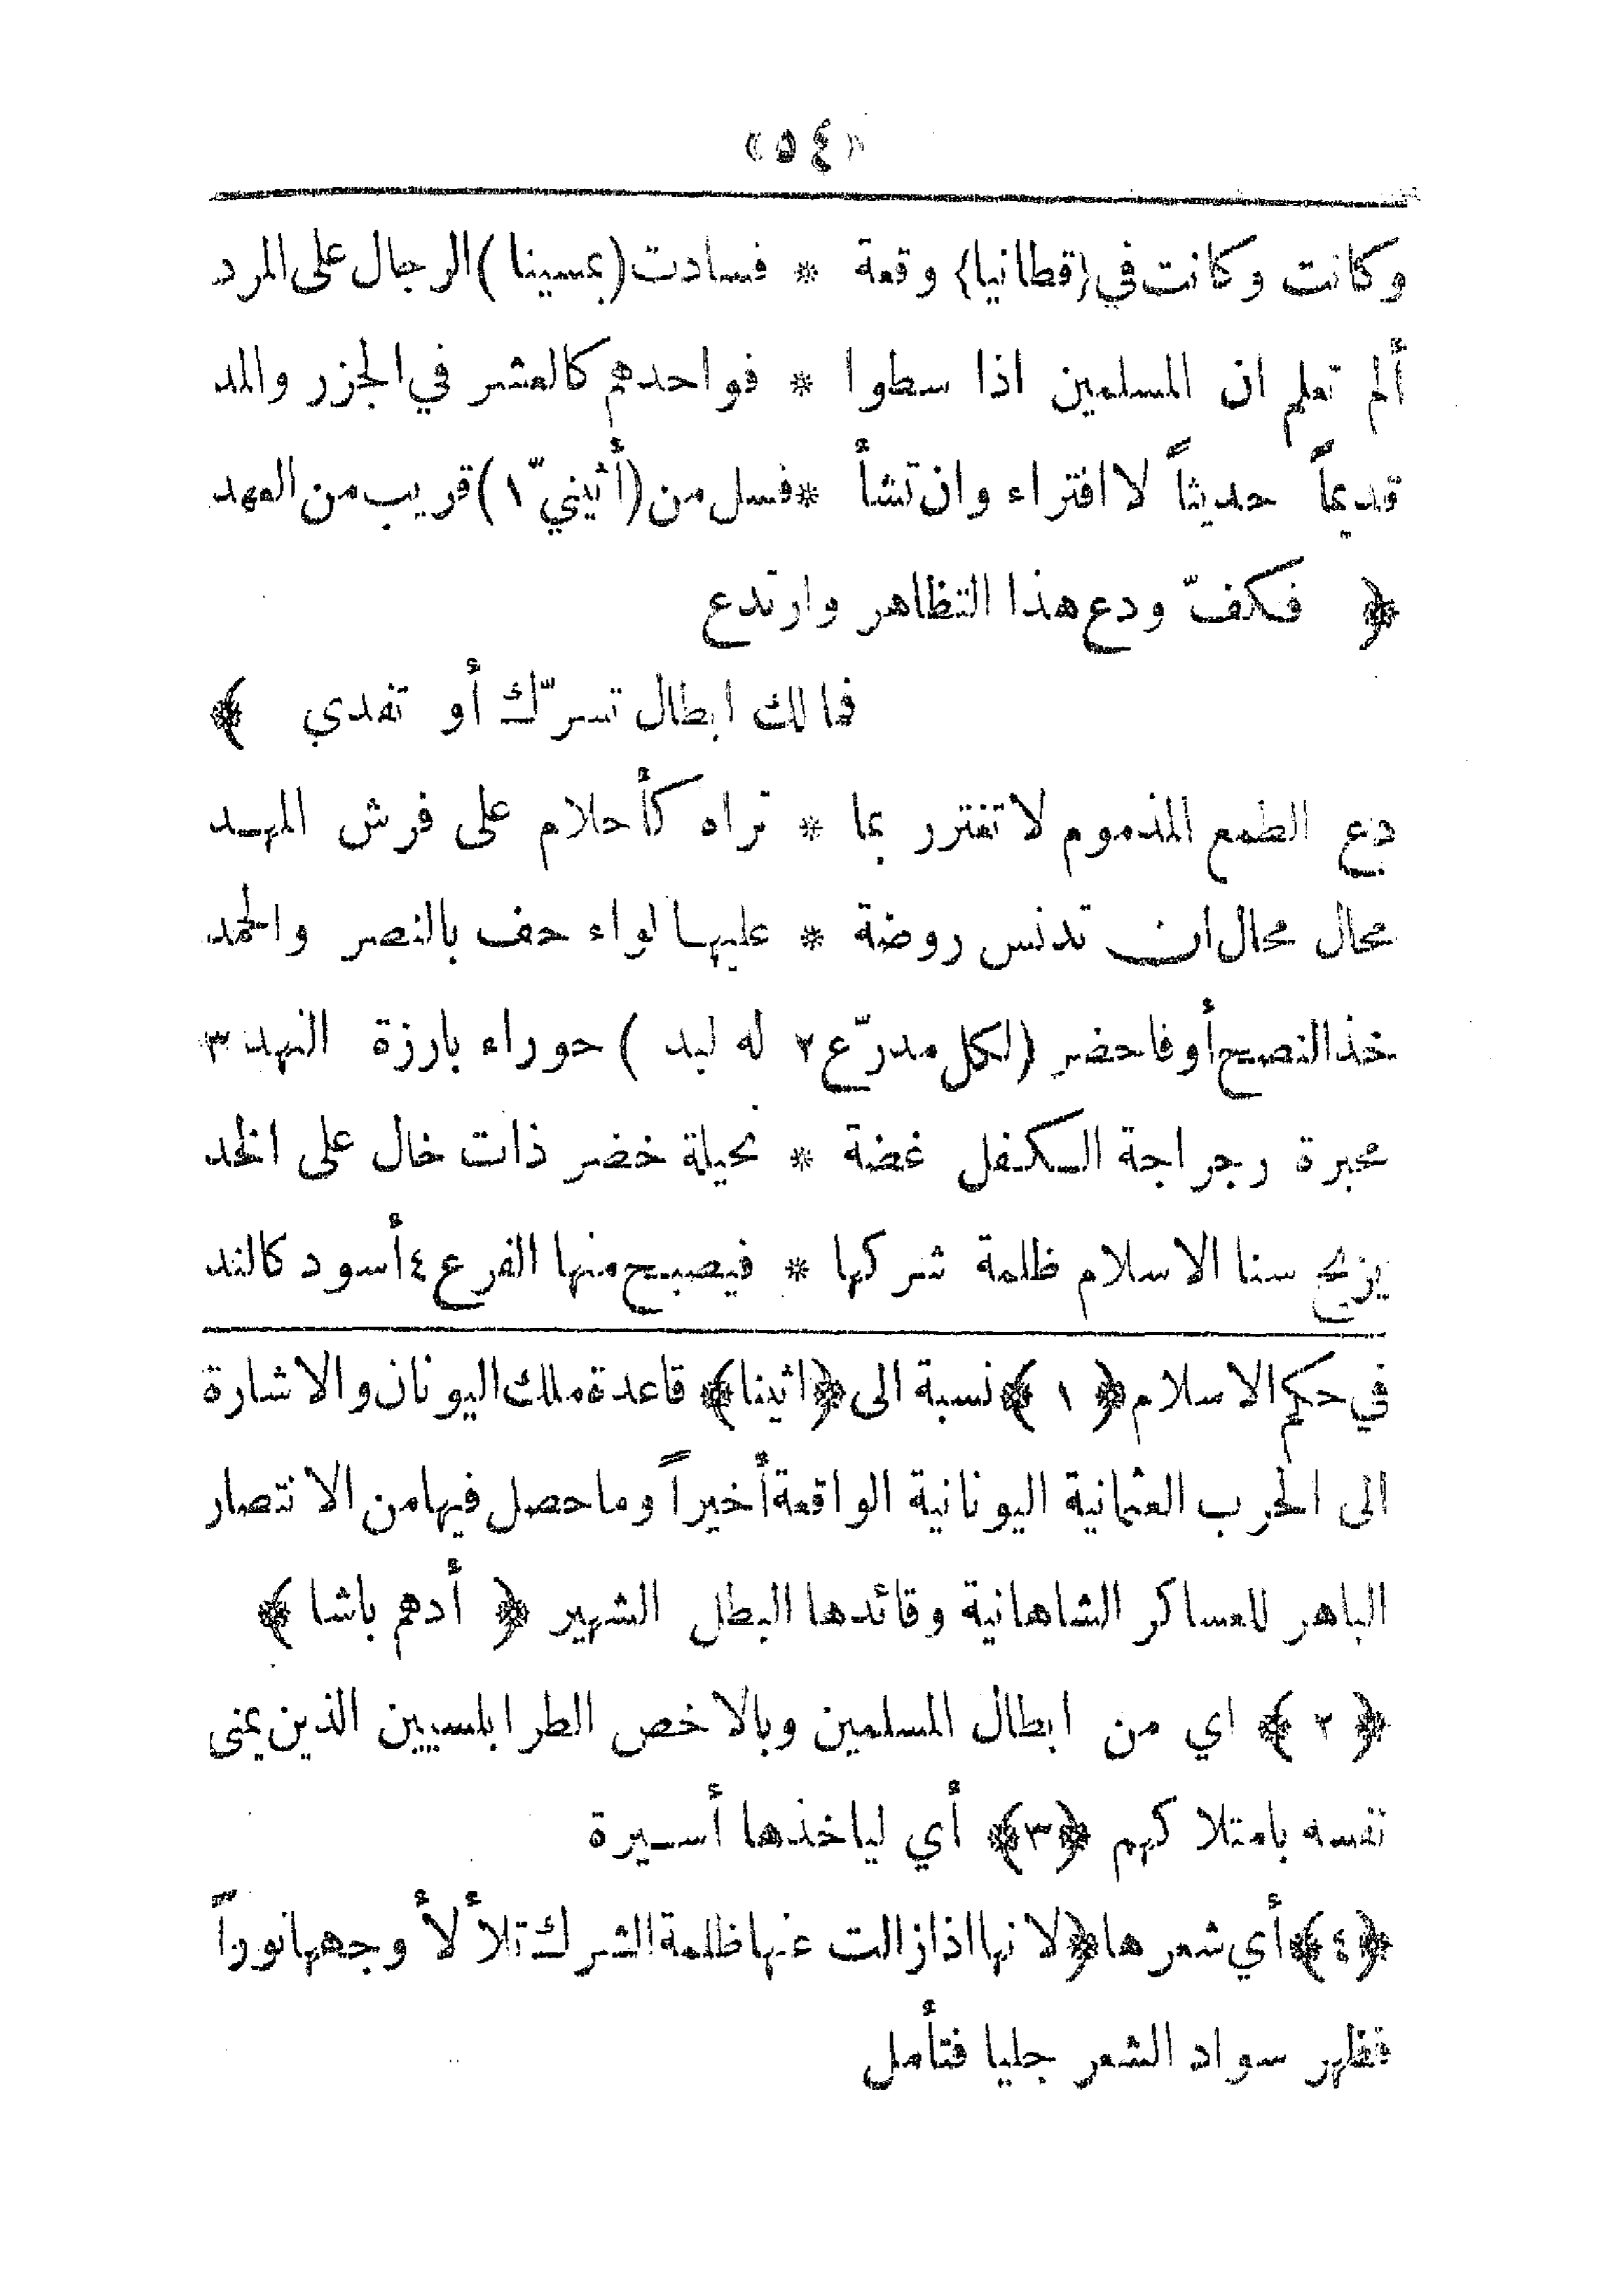 «٥٤»
وكانت وكانت في {قطانيا} وقعة * فسادت (بمسينا) الرجال على المرد
ألم تعلم ان المسلمين اذا سطوا * فواحدهم كالعشر في الجزر والمد
قديماً حديثاً لا افتراء وان تشأ * فسل من (أثينيّ ١) قريب من العهد
﴿ فكفّ ودع هذا التظاهر وارتدع
فما لك ابطال تسرّك أو تفدي ﴾
دع الطمع المذموم لا تغترر بما * تراه كأحلام على فرش المهد
محال محال ان تدنس روضة * عليها لواء حف بالنصر والحمد
خذ النصح أو فاحضر (لكل مدرّع ٢ له لبد) حوراء بارزة النهد ٣
محبرة رجراجة الكفل غضة * نحيلة خصر ذات خال على الخد
يزيح سنا الاسلام ظلمة شركها * فيصبح منها الفرع ٤ أسود كالند
في حكم الاسلام ﴿ ١ ﴾ نسبة الى ﴿اثينا﴾ قاعدة ملك اليونان والاشارة
الى الحرب العثمانية اليونانية الواقعة أخيراً وما حصل فيها من الانتصار
الباهر للعساكر الشاهانية وقائدها البطل الشهير ﴿ أدهم باشا ﴾
﴿ ٢ ﴾ اي من ابطال المسلمين وبالاخص الطرابلسيين الذين يمنى
نفسه بامتلاكهم ﴿٣﴾ أي لياخذها أسيرة
﴿٤﴾ أي شعرها ﴿لانها اذا زالت عنها ظلمة الشرك تلألأ وجهها نوراً
فظهر سواد الشعر جليا فتأمل